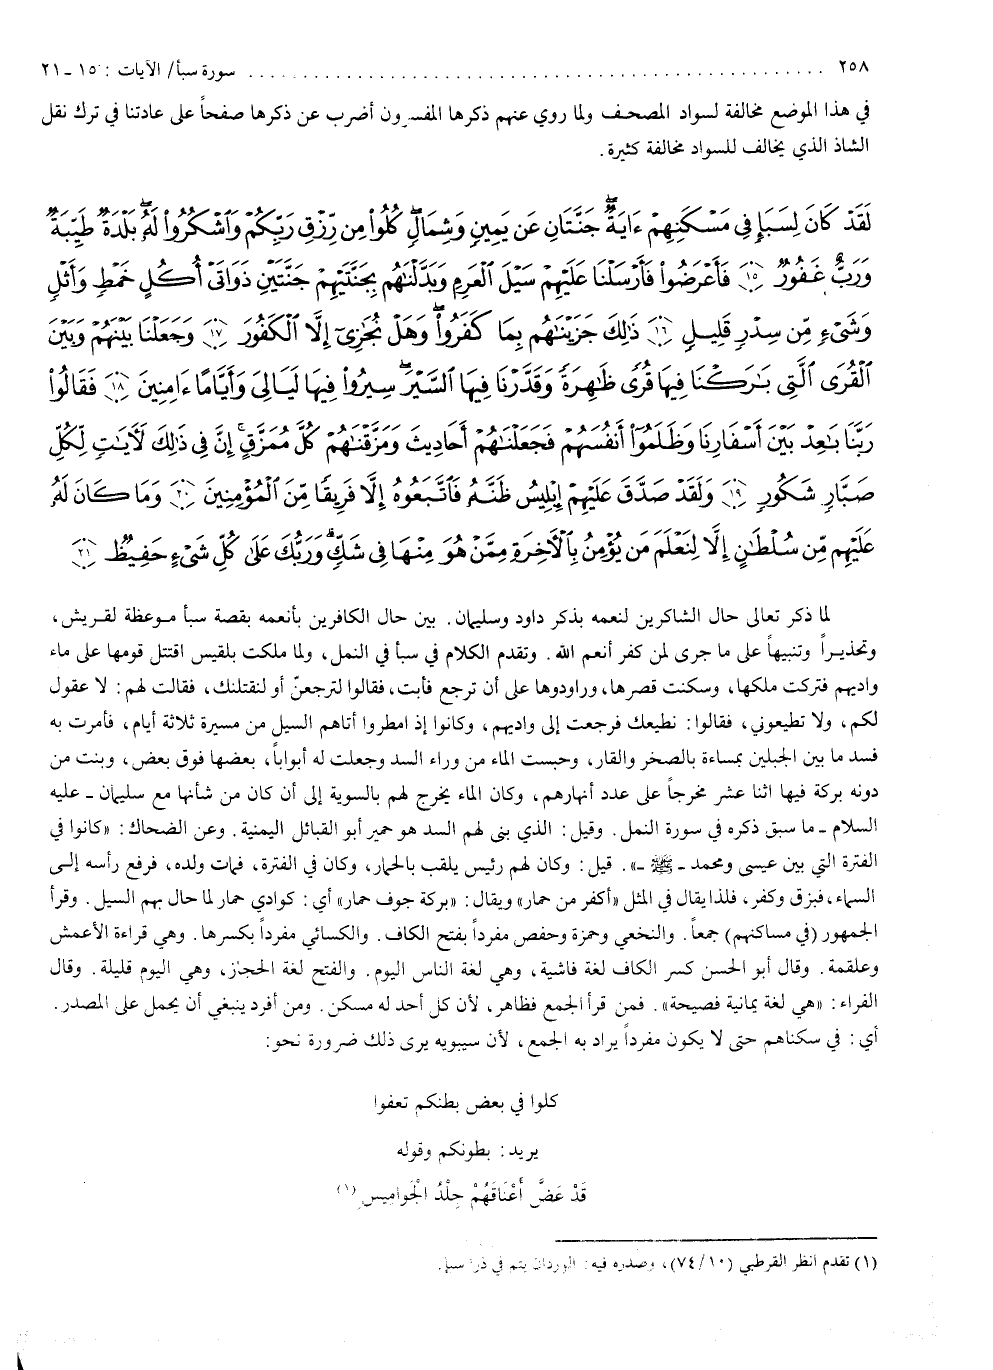 ٢٥٨ ........................................................ سورة سبأ/ الآيات : ١٥ - ٢١
في هذا الموضع مخالفة لسواد المصحف ولما روي عنهم ذكرها المفسرون أضرب عن ذكرها صفحاً على عادتنا في ترك نقل
الشاذ الذي يخالف للسواد مخالفة كثيرة.
لَقَدْ كَانَ لِسَبَإٍ فِى مَسْكَنِهِمْ ءَايَةٌۖ جَنَّتَانِ عَن يَمِينٍ وَشِمَالٍۖ كُلُوا۟ مِن رِّزْقِ رَبِّكُمْ وَٱشْكُرُوا۟ لَهُۥۚ بَلْدَةٌ طَيِّبَةٌ
وَرَبٌّ غَفُورٌ ﴿١٥﴾ فَأَعْرَضُوا۟ فَأَرْسَلْنَا عَلَيْهِمْ سَيْلَ ٱلْعَرِمِ وَبَدَّلْنَٰهُم بِجَنَّتَيْهِمْ جَنَّتَيْنِ ذَوَاتَىْ أُكُلٍ خَمْطٍ وَأَثْلٍ
وَشَىْءٍ مِّن سِدْرٍ قَلِيلٍ ﴿١٦﴾ ذَٰلِكَ جَزَيْنَٰهُم بِمَا كَفَرُوا۟ۖ وَهَلْ نُجَٰزِىٓ إِلَّا ٱلْكَفُورَ ﴿١٧﴾ وَجَعَلْنَا بَيْنَهُمْ وَبَيْنَ
ٱلْقُرَى ٱلَّتِى بَٰرَكْنَا فِيهَا قُرًى ظَٰهِرَةً وَقَدَّرْنَا فِيهَا ٱلسَّيْرَۖ سِيرُوا۟ فِيهَا لَيَالِىَ وَأَيَّامًا ءَامِنِينَ ﴿١٨﴾ فَقَالُوا۟
رَبَّنَا بَٰعِدْ بَيْنَ أَسْفَارِنَا وَظَلَمُوٓا۟ أَنفُسَهُمْ فَجَعَلْنَٰهُمْ أَحَادِيثَ وَمَزَّقْنَٰهُمْ كُلَّ مُمَزَّقٍۚ إِنَّ فِى ذَٰلِكَ لَءَايَٰتٍ لِّكُلِّ
صَبَّارٍ شَكُورٍ ﴿١٩﴾ وَلَقَدْ صَدَّقَ عَلَيْهِمْ إِبْلِيسُ ظَنَّهُۥ فَٱتَّبَعُوهُ إِلَّا فَرِيقًا مِّنَ ٱلْمُؤْمِنِينَ ﴿٢٠﴾ وَمَا كَانَ لَهُۥ
عَلَيْهِم مِّن سُلْطَٰنٍ إِلَّا لِنَعْلَمَ مَن يُؤْمِنُ بِٱلْءَاخِرَةِ مِمَّنْ هُوَ مِنْهَا فِى شَكٍّۗ وَرَبُّكَ عَلَىٰ كُلِّ شَىْءٍ حَفِيظٌ ﴿٢١﴾
لما ذكر تعالى حال الشاكرين لنعمه بذكر داود وسليمان. بين حال الكافرين بأنعمه بقصة سبأ موعظة لقريش،
وتحذيراً وتنبيهاً على ما جرى لمن كفر أنعم الله. وتقدم الكلام في سبأ في النمل، ولما ملكت بلقيس اقتتل قومها على ماء
واديهم فتركت ملكها، وسكنت قصرها، وراودوها على أن ترجع فأبت، فقالوا لترجعنّ أو لنقتلنك، فقالت لهم: لا عقول
لكم، ولا تطيعوني، فقالوا: نطيعك فرجعت إلى واديهم، وكانوا إذ امطروا أتاهم السيل من مسيرة ثلاثة أيام، فأمرت به
فسد ما بين الجبلين بمساءة بالصخر والقار، وحبست الماء من وراء السد وجعلت له أبواباً، بعضها فوق بعض، وبنت من
دونه بركة فيها اثنا عشر مخرجاً على عدد أنهارهم، وكان الماء يخرج لهم بالسوية إلى أن كان من شأنها مع سليمان - عليه
السلام - ما سبق ذكره في سورة النمل. وقيل: الذي بنى لهم السد هو حمير أبو القبائل اليمنية. وعن الضحاك: «كانوا في
الفترة التي بين عيسى ومحمد - ﷺ -». قيل: وكان لهم رئيس يلقب بالحمار، وكان في الفترة، فمات ولده، فرفع رأسه إلى
السماء، فبزق وكفر، فلذا يقال في المثل «أكفر من حمار» ويقال: «بركة جوف حمار» أي: كوادي حمار لما حال بهم السيل. وقرأ
الجمهور (في مساكنهم) جمعاً. والنخعي وحمزة وحفص مفرداً بفتح الكاف. والكسائي مفرداً بكسرها. وهي قراءة الأعمش
وعلقمة. وقال أبو الحسن كسر الكاف لغة فاشية، وهي لغة الناس اليوم. والفتح لغة الحجاز، وهي اليوم قليلة. وقال
الفراء: «هي لغة يمانية فصيحة». فمن قرأ الجمع فظاهر، لأن كل أحد له مسكن. ومن أفرد ينبغي أن يحمل على المصدر.
أي: في سكناهم حتى لا يكون مفرداً يراد به الجمع، لأن سيبويه يرى ذلك ضرورة نحو:
كلوا في بعض بطنكم تعفوا
يريد: بطونكم وقوله
قَدْ عَضَّ أَعْنَاقَهُمْ جِلْدُ الْجَوَامِيسِ (١)
(١) تقدم انظر القرطبي (٧٤/١٠)، وصدره فيه: الوردان يتم في ذرا سبأ.